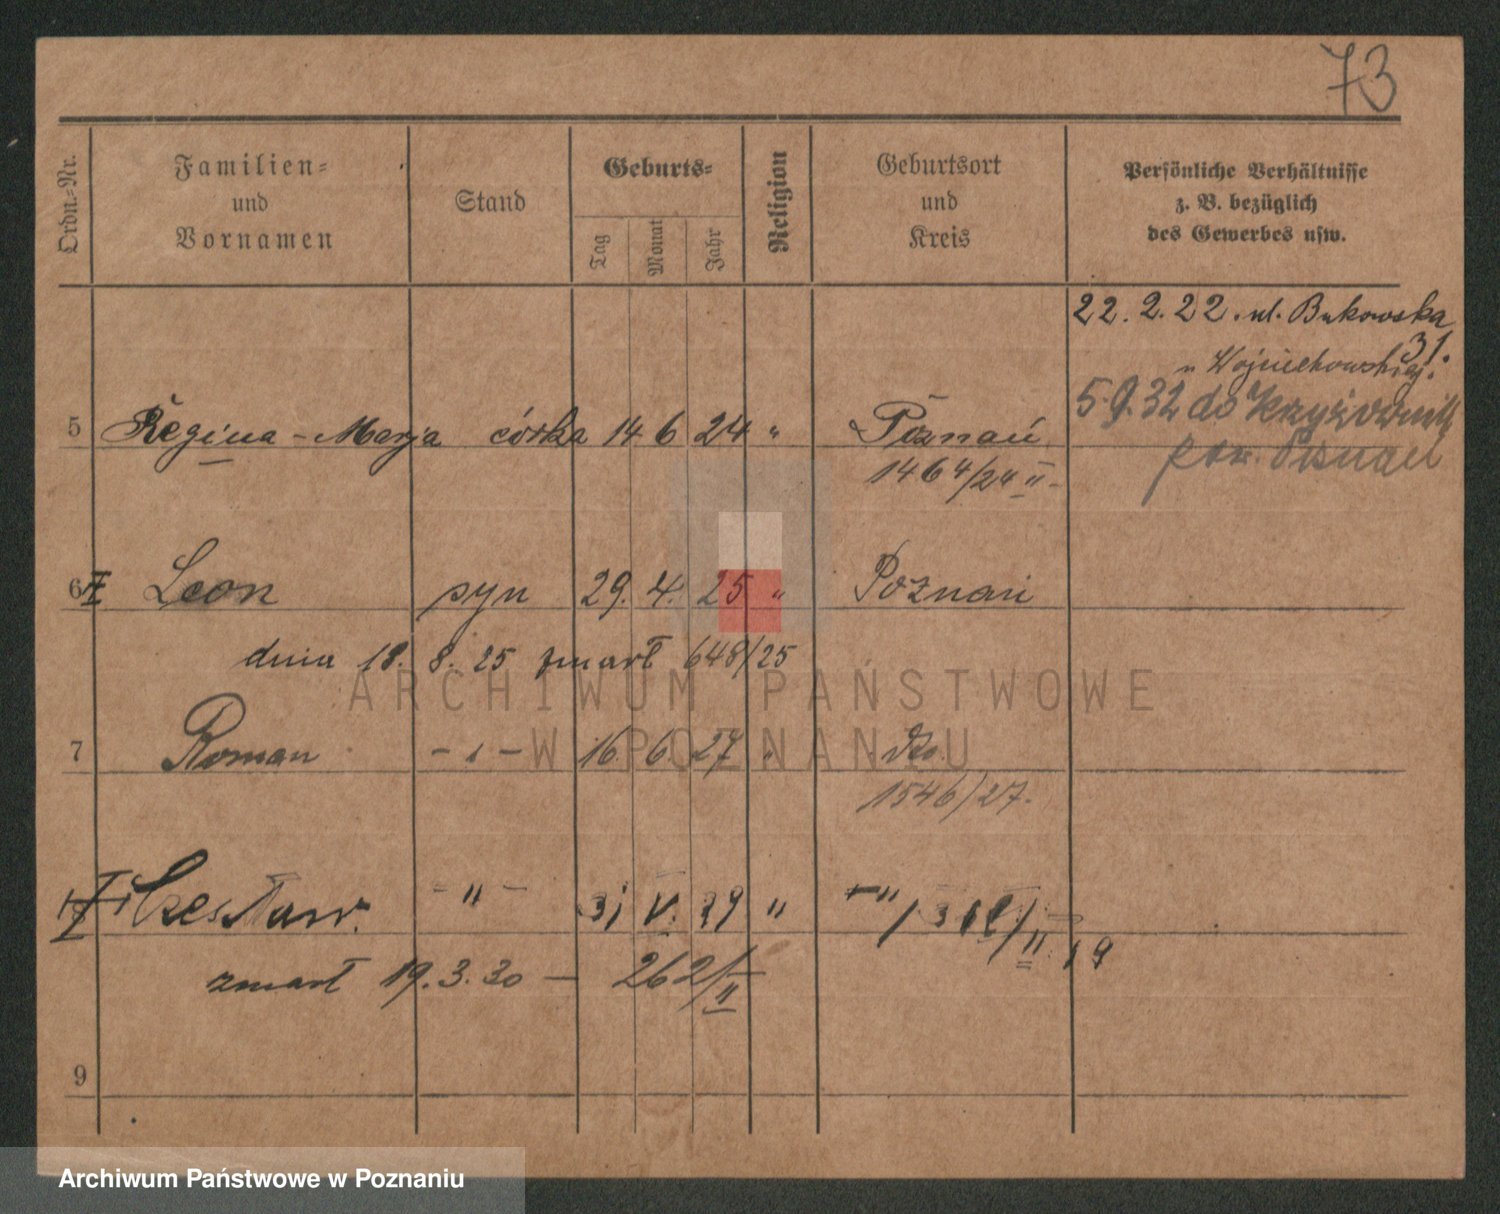 73
Ordn.-Nr.
Familien-
und
Vornamen
Stand
Geburts-
Tag
Monat
Jahr
Religion
Geburtsort
und
Kreis
Persönliche Verhältnisse
z. B. bezüglich
des Gewerbes usw.
22. 2. 22. ul. Bukowska
31.
u Wojciechowskiej.
5.9.32 do Krzyżownik
pow. Poznań
5 Regina - Marja córka 14 6 24 " Poznań
1464/24 II
6 Leon syn 29. 4. 25 " Poznań
dnia 18. 8. 25 zmarł 648/25
7 Roman - " - 16. 6. 27 " dto.
1546/27.
Czesław. - " - 31 V. 29 " - "
zmarł 19. 3. 30 — 262/II
9
ARCHIWUM PAŃSTWOWE
W POZNANIU
Archiwum Państwowe w Poznaniu